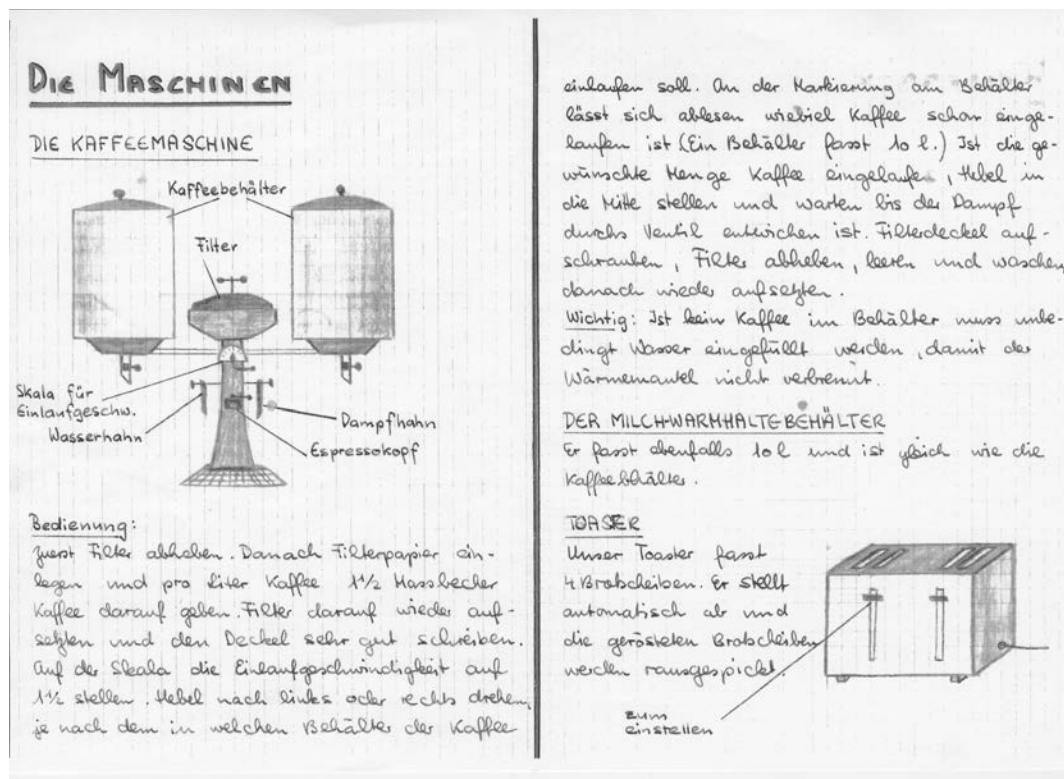 DIE MASCHINEN
DIE KAFFEEMASCHINE
Kaffeebehälter
Filter
Skala für
Einlaufgeschw.
Wasserhahn
Dampfhahn
Espressokopf
Bedienung:
Zuerst Filter abheben. Danach Filterpapier ein-
legen und pro Liter Kaffee 1 1/2 Massbecher
Kaffee darauf geben. Filter darauf wieder auf-
setzten und den Deckel sehr gut schreiben.
Auf der Skala die Einlaufgeschwindigkeit auf
1 1/2 stellen. Hebel nach links oder rechts drehen,
je nach dem in welchen Behälter der Kaffee
einlaufen soll. An der Markierung am Behälter
lässt sich ablesen wieviel Kaffee schon einge-
laufen ist (Ein Behälter fasst 10 l.) Ist die ge-
wünschte Menge Kaffee eingelaufen, Hebel in
die Mitte stellen und warten bis der Dampf
durchs Ventil entwichen ist. Filterdeckel auf-
schrauben, Filter abheben, leeren und waschen
danach wieder aufsetzten.
Wichtig: Ist kein Kaffee im Behälter muss unbe-
dingt Wasser eingefüllt werden, damit der
Wärmemantel nicht verbrennt.
DER MILCHWARMHALTEBEHÄLTER
Er fasst ebenfalls 10 l und ist gleich wie die
Kaffeebhälter.
TOASER
Unser Toaster fasst
4 Brotscheiben. Er stellt
automatisch ab und
die gerösteten Brotscheiben
werden rausgespickt.
zum
einstellen